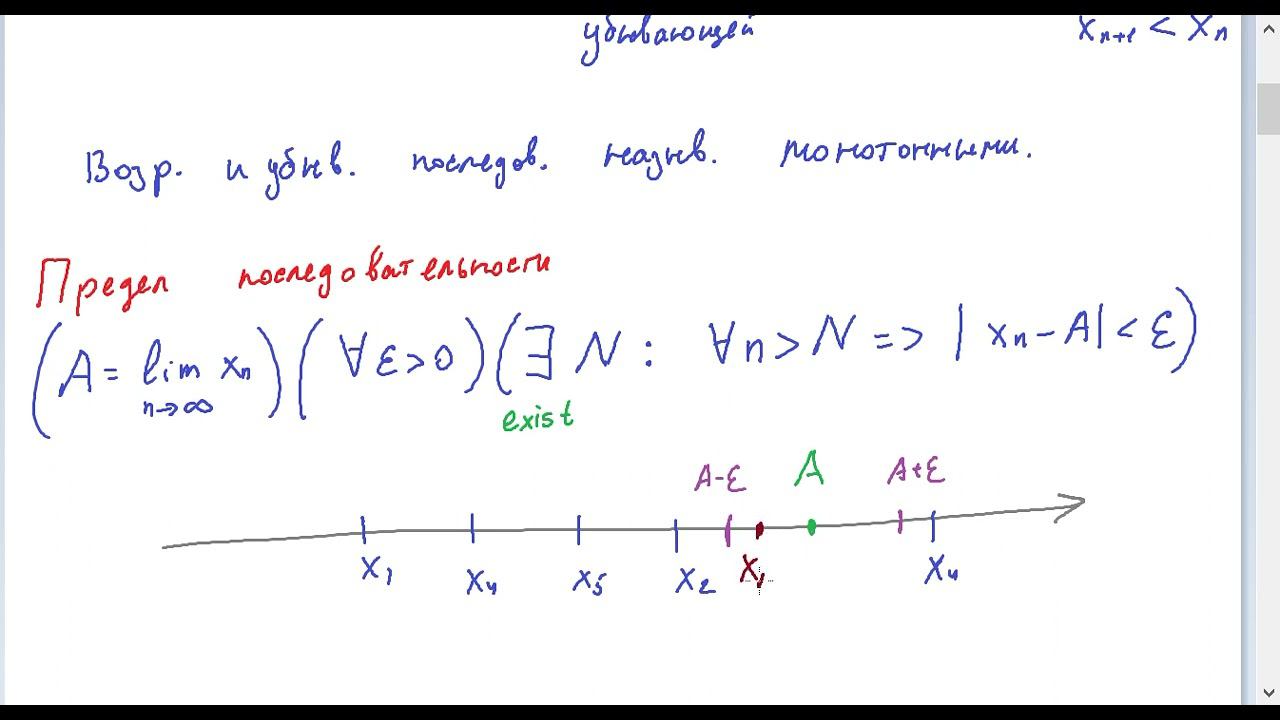 убывающей xₙ₊₁ < xₙ
Возр. и убыв. последов. назыв. монотонными.
Предел последовательности
(A = lim xₙ) (∀ε>0) (∃ N : ∀n > N => |xₙ - A| < ε)
n→∞
exist
A-ε A A+ε
x₁ x₄ x₅ x₂ x₁ x₄